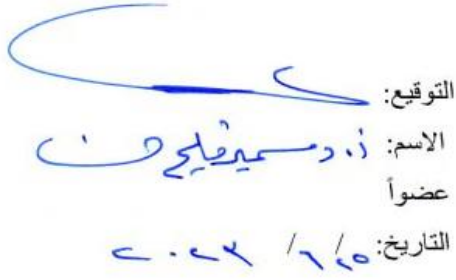 التوقيع:
الاسم: أ.د. سمير فليح حسن
عضواً
التاريخ: ٢٥/ ٦/ ٢٠٢٣